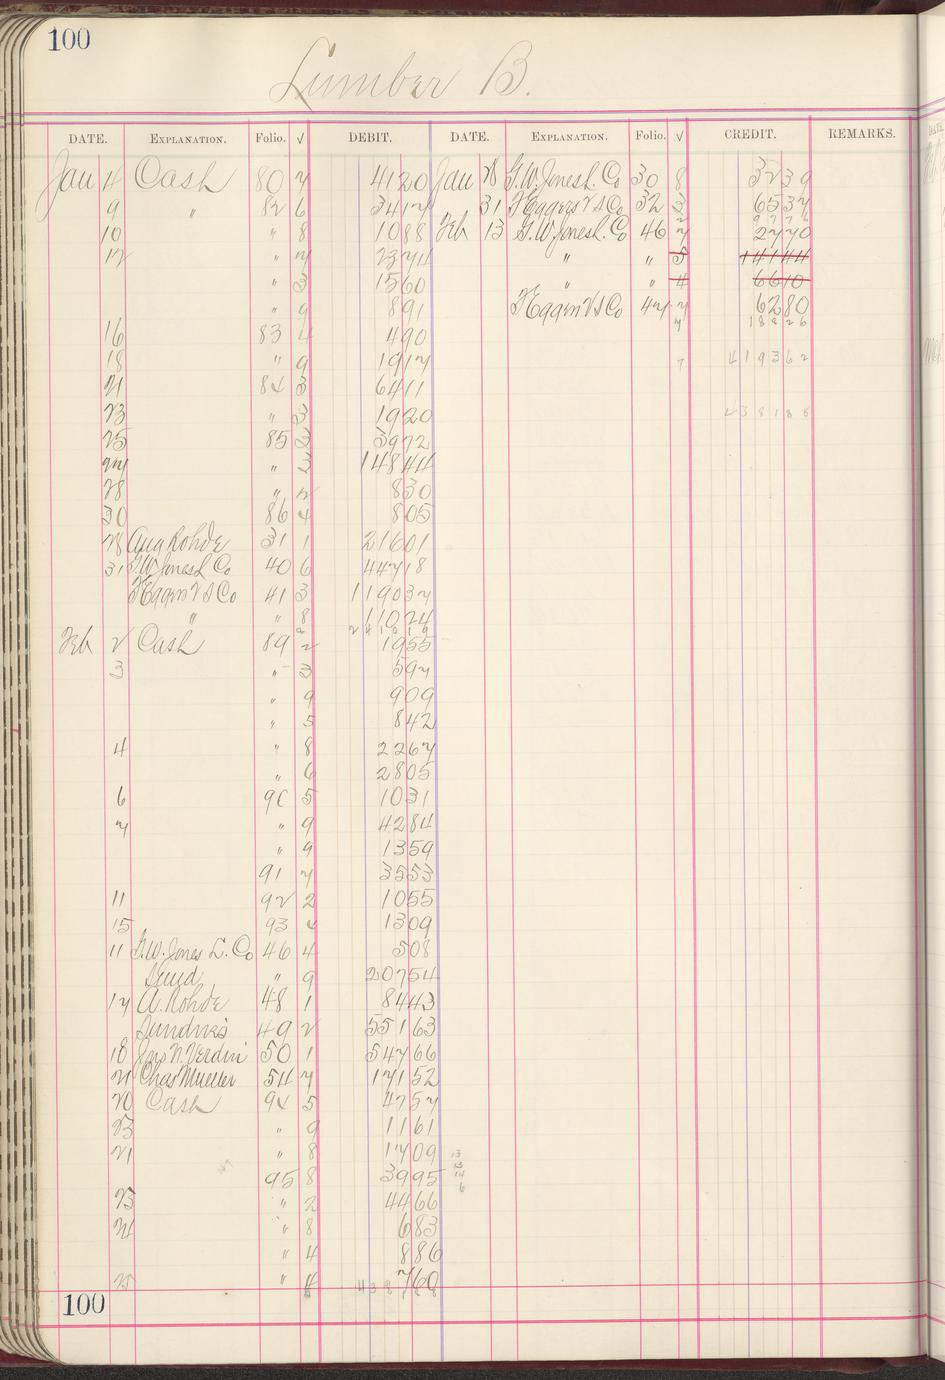 100
Lumber B.
DATE. EXPLANATION. Folio. √ DEBIT. DATE. EXPLANATION. Folio. √ CREDIT. REMARKS.
Jan 4 Cash 80 7 41 20 Jan 28 G.W. Jones L. Co 30 8 32 39
9 " 82 6 34 17 31 F Eggers V S Co 32 3 65 37
10 " 8 10 88 Feb 13 G.W Jones L. Co 46 7 27 70
12 " 7 23 74 " " 5 141 44
" 3 15 60 " " 4 66 10
" 9 8 91 F Eggers V S Co 47 7 62 80
16 83 4 4 90 7 188 26
18 " 9 19 17 7 4193 62
21 84 3 64 11
23 " 3 19 20 2381 88
25 85 3 39 72
27 " 3 148 44
28 " 2 8 30
30 86 4 8 05
28 Aug Rohde 31 1 216 01
31 G.W Jones L Co 40 6 447 18
F Eggers V S Co 41 3 1190 37
" " 8 110 24
Feb 2 Cash 89 2 19 55
3 " 3 5 97
" 9 9 09
" 5 8 42
4 " 8 22 67
" 6 28 05
6 90 5 10 31
7 " 9 42 84
" 9 13 59
91 7 35 53
11 92 2 10 55
15 93 4 13 09
11 G.W. Jones L. Co 46 4 5 08
" 9 207 54
17 A. Rohde 48 1 84 43
Sundries 49 2 551 63
18 Jas N. Verdin 50 1 547 66
21 Chas Mueller 54 7 171 52
20 Cash 94 5 47 57
23 " 9 11 61
21 " 8 17 09
95 8 39 95
23 " 2 44 66
24 " 8 6 83
" 4 8 86
25 " 4 7 60
100